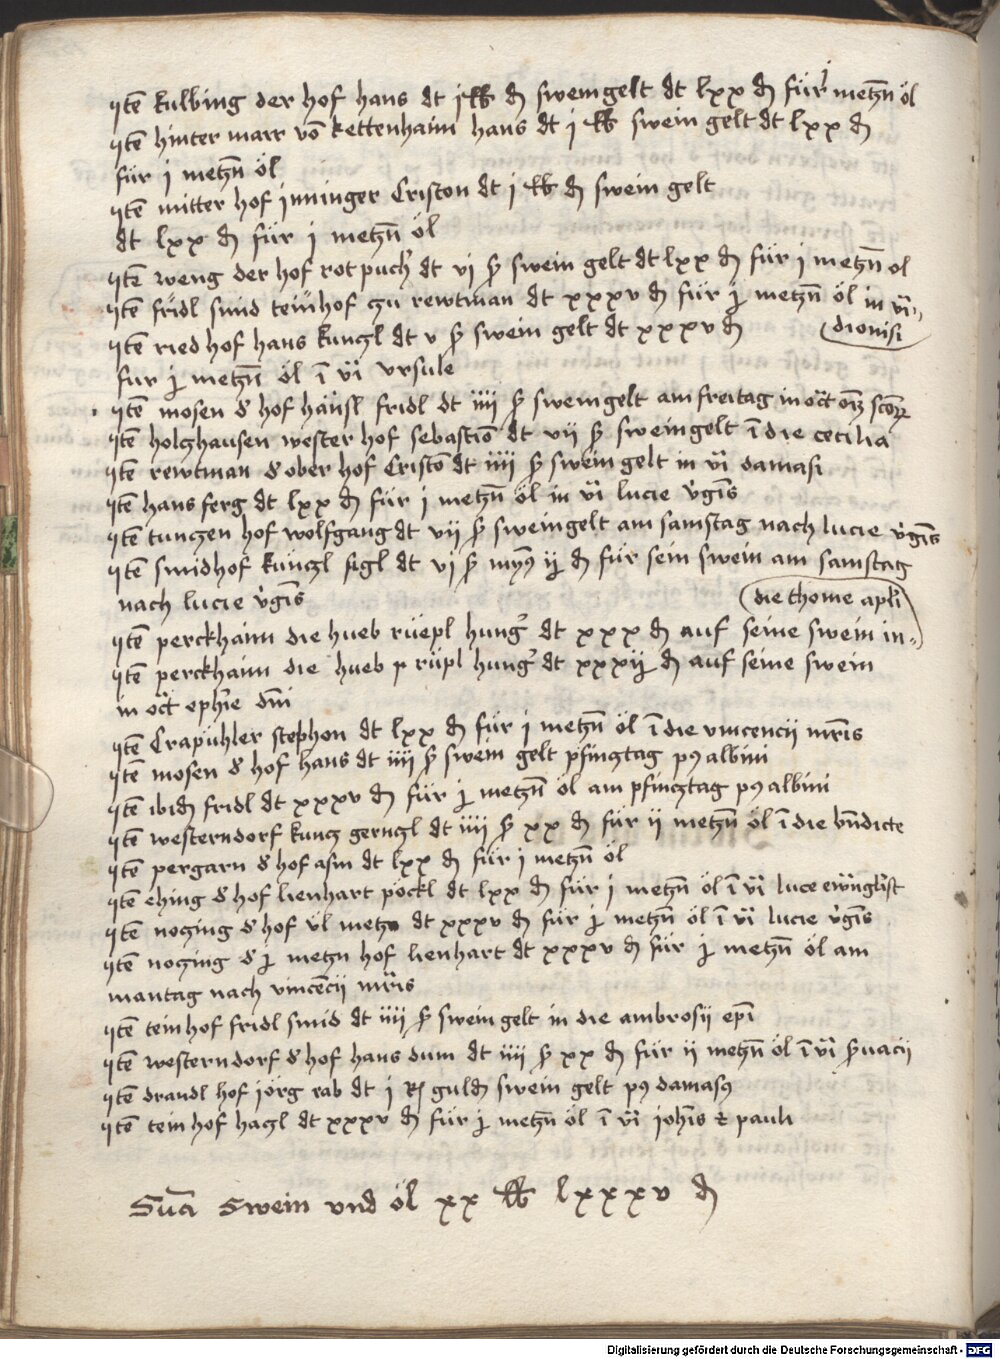 Itē kulbing der hof hans dt j ℔ ₰ sweingelt dt lxx ₰ für j metzn̄ öl
Itē hinter marr vō kettenhaim hans dt j ℔ swein gelt dt lxx ₰
für j metzn̄ öl
Itē mitter hof jnninger Criston dt j ℔ ₰ swein gelt
dt lxx ₰ für j metzn̄ öl
Itē weng der hof rotpuchʼ dt vj ß swein gelt dt lxx ₰ für j metzn̄ ol
Itē fridl smid temhof zu rewtman dt xxxv ₰ für j metzn̄ öl in vi
dionisi
Itē ried hof hans kunzl dt v ß swein gelt dt xxxv ₰
fur j metzn̄ öl ī vi vrsule
Itē mosen dʼ hof hänsl fridl dt iiij ß sweingelt am freitag in oct om scōꝝ
Itē holczhausen wester hof sebastiō dt vij ß sweingelt ī die cecilia
Itē rewtman dʼ ober hof Cristō dt iiij ß swein gelt in vi damasi
Itē hans ferg dt lxx ₰ für j metzn̄ öl in vi lucie vʼgīs
Itē tunczen hof wolfgang dt vij ß sweingelt am samstag nach lucie vʼgīs
Itē smidhof künzl sigl dt vj ß mynꝰ ij ₰ für sein swein am samstag
nach lucie vʼgīs
die thome apli
Itē perckhaim die hueb rüepl hungʼ dt xxx ₰ auf seine swein in
Itē perckhaim die hueb p rüpl hungʼ dt xxxij ₰ auf seine swein
in oct ephīe dm̄i
Itē Crapühler stephon dt lxx ₰ für j metzn̄ öl ī die vincencij mr̄is
Itē mosen dʼ hof hans dt iiij ß swein gelt pfincztag pꝰ albini
Itē ibidn̄ fridl dt xxxv ₰ für j metzn̄ öl am pfincztag pꝰ albini
Itē westerndorf kunz gernzl dt iiij ß xx ₰ für ij metzn̄ öl ī die bn̄dicte
Itē pergarn dʼ hof asm dt lxx ₰ für j metzn̄ öl
Itē ehing dʼ hof lienhart pöckl dt lxx ₰ für j metzn̄ öl ī vi luce ewāglist
Itē noczing dʼ hof vl metzn dt xxxv ₰ für j metzn̄ öl ī vi lucie vʼgīs
Itē noczing dʼ j metzn hof lienhart dt xxxv ₰ für j metzn̄ öl am
mantag nach vincēcij mr̄is
Itē teinhof fridl smid dt iiij ß swein gelt in die ambrosij ep̄i
Itē westerndorf dʼ hof hans dum dt iiij ß xx ₰ für ij metzn̄ öl ī vi ßuacij
Itē drandl hof jörg rab dt j R guldn̄ swein gelt pꝰ damasꝰ
Itē teinhof hagl dt xxxv ₰ für j metzn̄ öl ī vi johīs et pauli
Sūa swein vnd öl xx ℔ lxxxv ₰
Digitalisierung gefördert durch die Deutsche Forschungsgemeinschaft - DFG